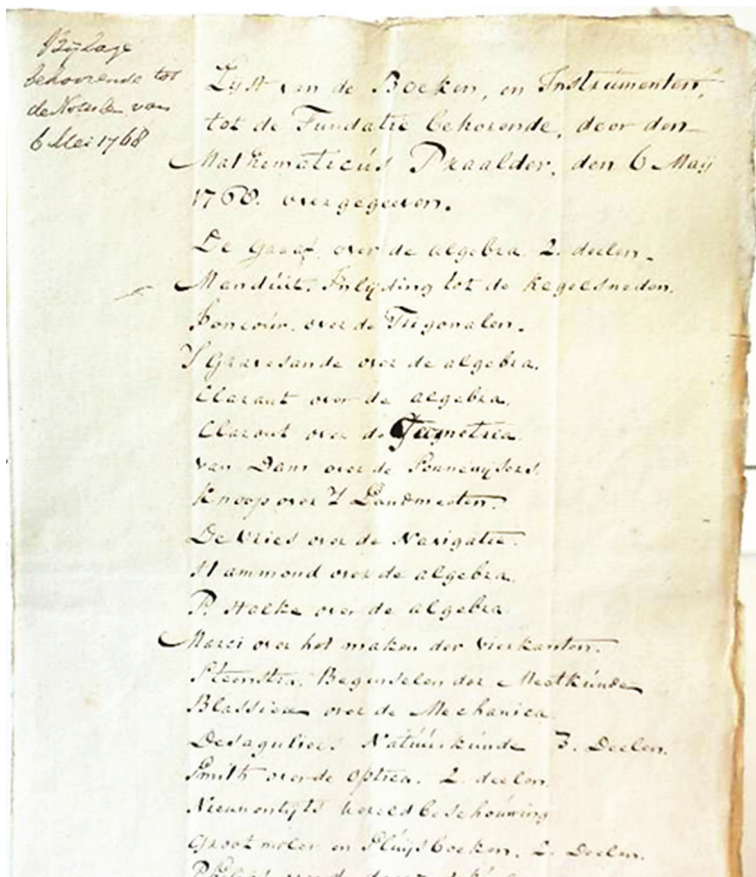 Bijlage
behoorende tot
de Notulen van
6 Mei 1768
Lijst van de Boeken, en Instrumenten,
tot de Fundatie behorende, door den
Mathematicús Praalder, den 6 Maij
1768. overgegeeven.
De Graaf, over de algebra. 2. deelen.
Mandúit. Inlijding tot de kegelsneden.
over de
S Gravesande over de algebra.
Claraut over de algebra.
Claraut over de Geometria.
van Dam over de Sonnewijsers.
Knoop over 't Landmeten.
De Vries over de Navigatie.
Hammond over de algebra.
P. Halke over de algebra.
Marci over het maken der vierkanten.
Steenstra. Beginselen der Meetkúnde
Blassiere over de Mechanica
Desaguliers Natúúrkúnde 3. Deelen.
Smith over de optica. 2. deelen.
Nieuwentijts wereldbeschoúwing
Groot molen en Sluijsboeken. 2. Deelen.